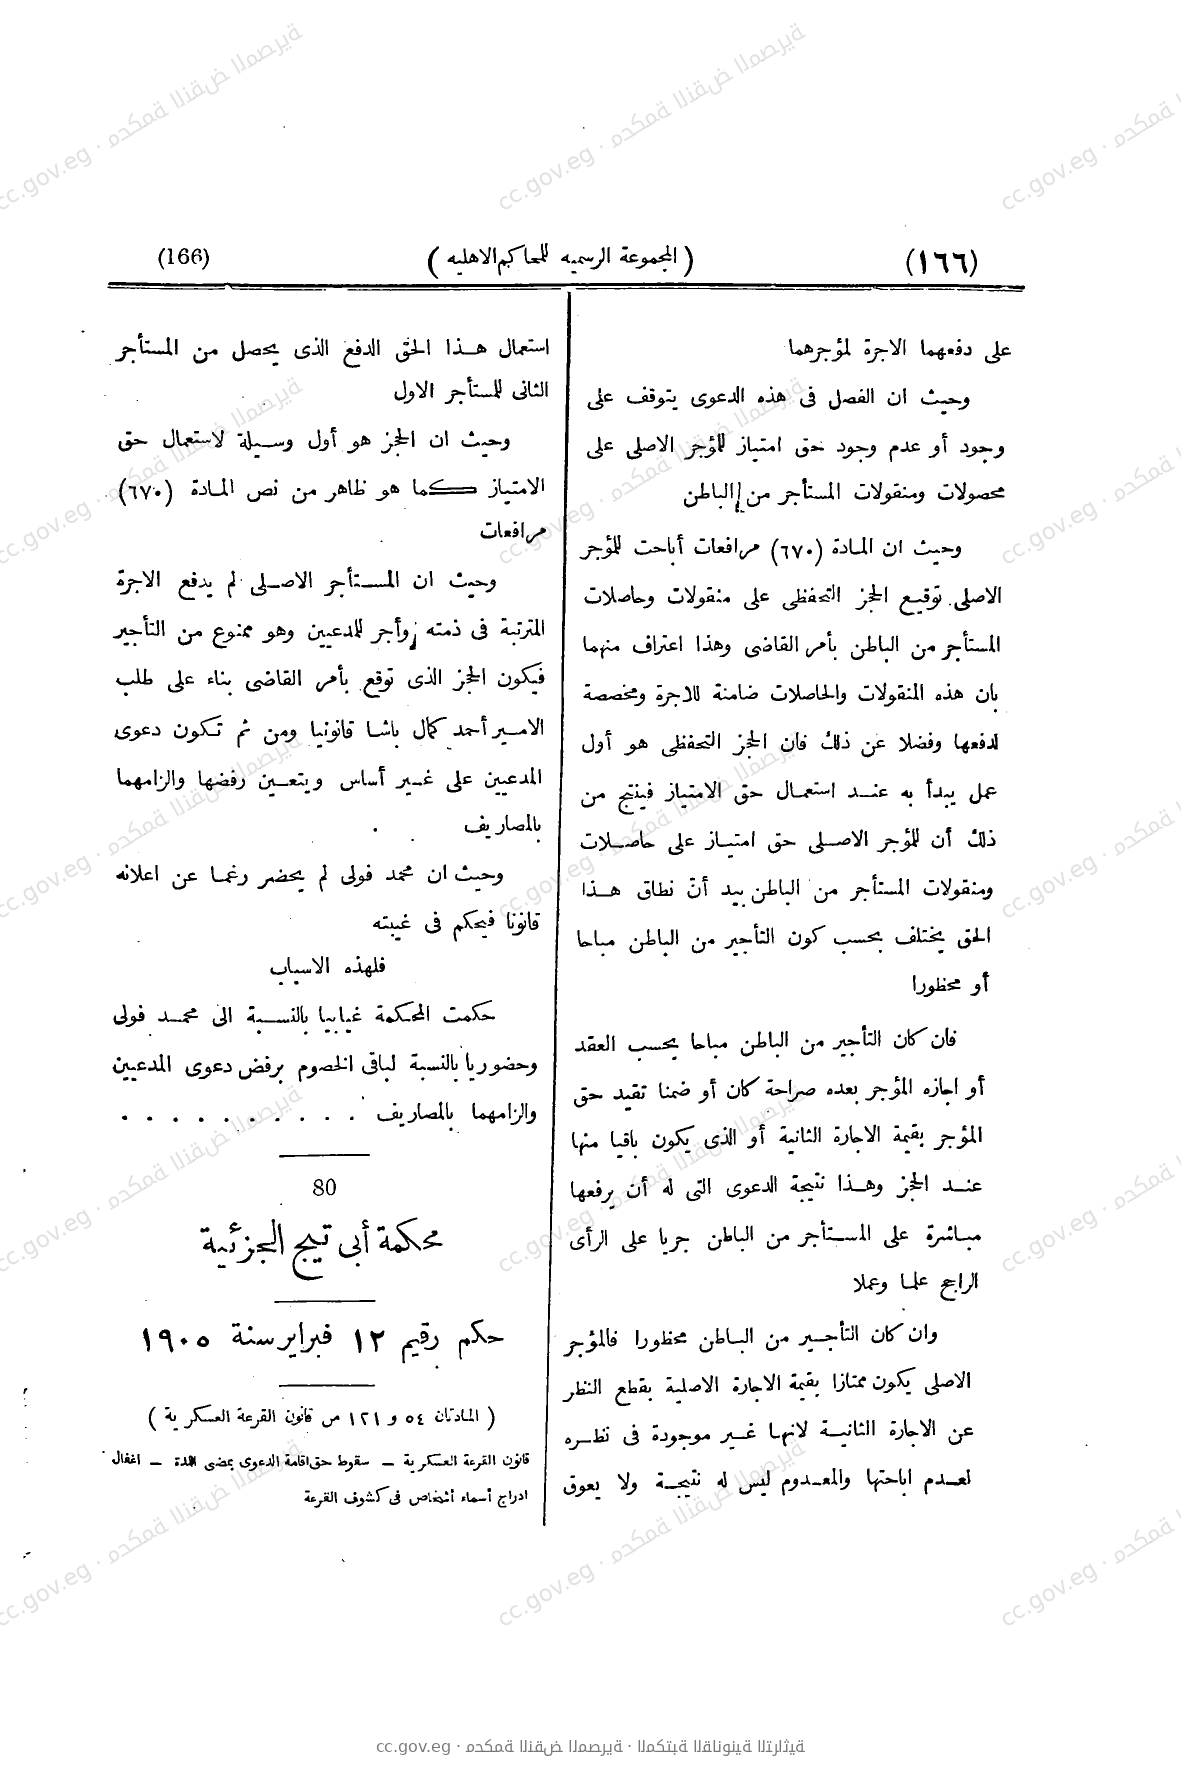 (١٦٦)
( المجموعة الرسميه للمحاكم الاهليه )
(166)
على دفعهما الاجرة لمؤجرهما
وحيث ان الفصل فى هذه الدعوى يتوقف على
وجود أو عدم وجود حق امتياز للمؤجر الاصلى على
محصولات ومنقولات المستأجر من الباطن
وحيث ان المادة (٦٧٠) مرافعات أباحت للمؤجر
الاصلى توقيع الحجز التحفظى على منقولات وحاصلات
المستأجر من الباطن بأمر القاضى وهذا اعتراف منهما
بان هذه المنقولات والحاصلات ضامنة للاجرة ومخصصة
لدفعها وفضلا عن ذلك فان الحجز التحفظى هو أول
عمل يبدأ به عند استعمال حق الامتياز فينتج من
ذلك أن للمؤجر الاصلى حق امتياز على حاصلات
ومنقولات المستأجر من الباطن بيد أن نطاق هذا
الحق يختلف بحسب كون التأجير من الباطن مباحا
أو محظورا
فان كان التأجير من الباطن مباحا بحسب العقد
أو اجازه المؤجر بعده صراحة كان أو ضمنا تقيد حق
المؤجر بقيمة الاجارة الثانية أو الذى يكون باقيا منها
عند الحجز وهذا نتيجة الدعوى التى له أن يرفعها
مباشرة على المستأجر من الباطن جريا على الرأى
الراجح علما وعملا
وان كان التأجير من الباطن محظورا فالمؤجر
الاصلى يكون ممتازا بقيمة الاجارة الاصلية بقطع النظر
عن الاجارة الثانية لانها غير موجودة فى نظره
لعدم اباحتها والمعدوم ليس له نتيجة ولا يعوق
استعمال هذا الحق الدفع الذى يحصل من المستأجر
الثانى للمستأجر الاول
وحيث ان الحجز هو أول وسيلة لاستعمال حق
الامتياز كما هو ظاهر من نص المادة (٦٧٠)
مرافعات
وحيث ان المستأجر الاصلى لم يدفع الاجرة
المترتبة فى ذمته وأجر للمدعيين وهو ممنوع من التأجير
فيكون الحجز الذى توقع بأمر القاضى بناء على طلب
الامير أحمد كمال باشا قانونيا ومن ثم تكون دعوى
المدعيين على غير أساس ويتعين رفضها والزامهما
بالمصاريف
وحيث ان محمد فولى لم يحضر رغما عن اعلانه
قانونا فيحكم فى غيبته
فلهذه الاسباب
حكمت المحكمة غيابيا بالنسبة الى محمد فولى
وحضوريا بالنسبة لباقى الخصوم برفض دعوى المدعيين
والزامهما بالمصاريف . . . . . . . . . .
80
محكمة أبى تيج الجزئية
حكم رقيم ١٢ فبراير سنة ١٩٠٥
( المادتان ٥٤ و ١٢١ من قانون القرعة العسكرية )
قانون القرعة العسكرية – سقوط حق اقامة الدعوى بمضى المدة – اغفال
ادراج أسماء أشخاص فى كشوف القرعة
cc.gov.eg · محكمة النقض المصرية · المكتبة القانونية التراثية